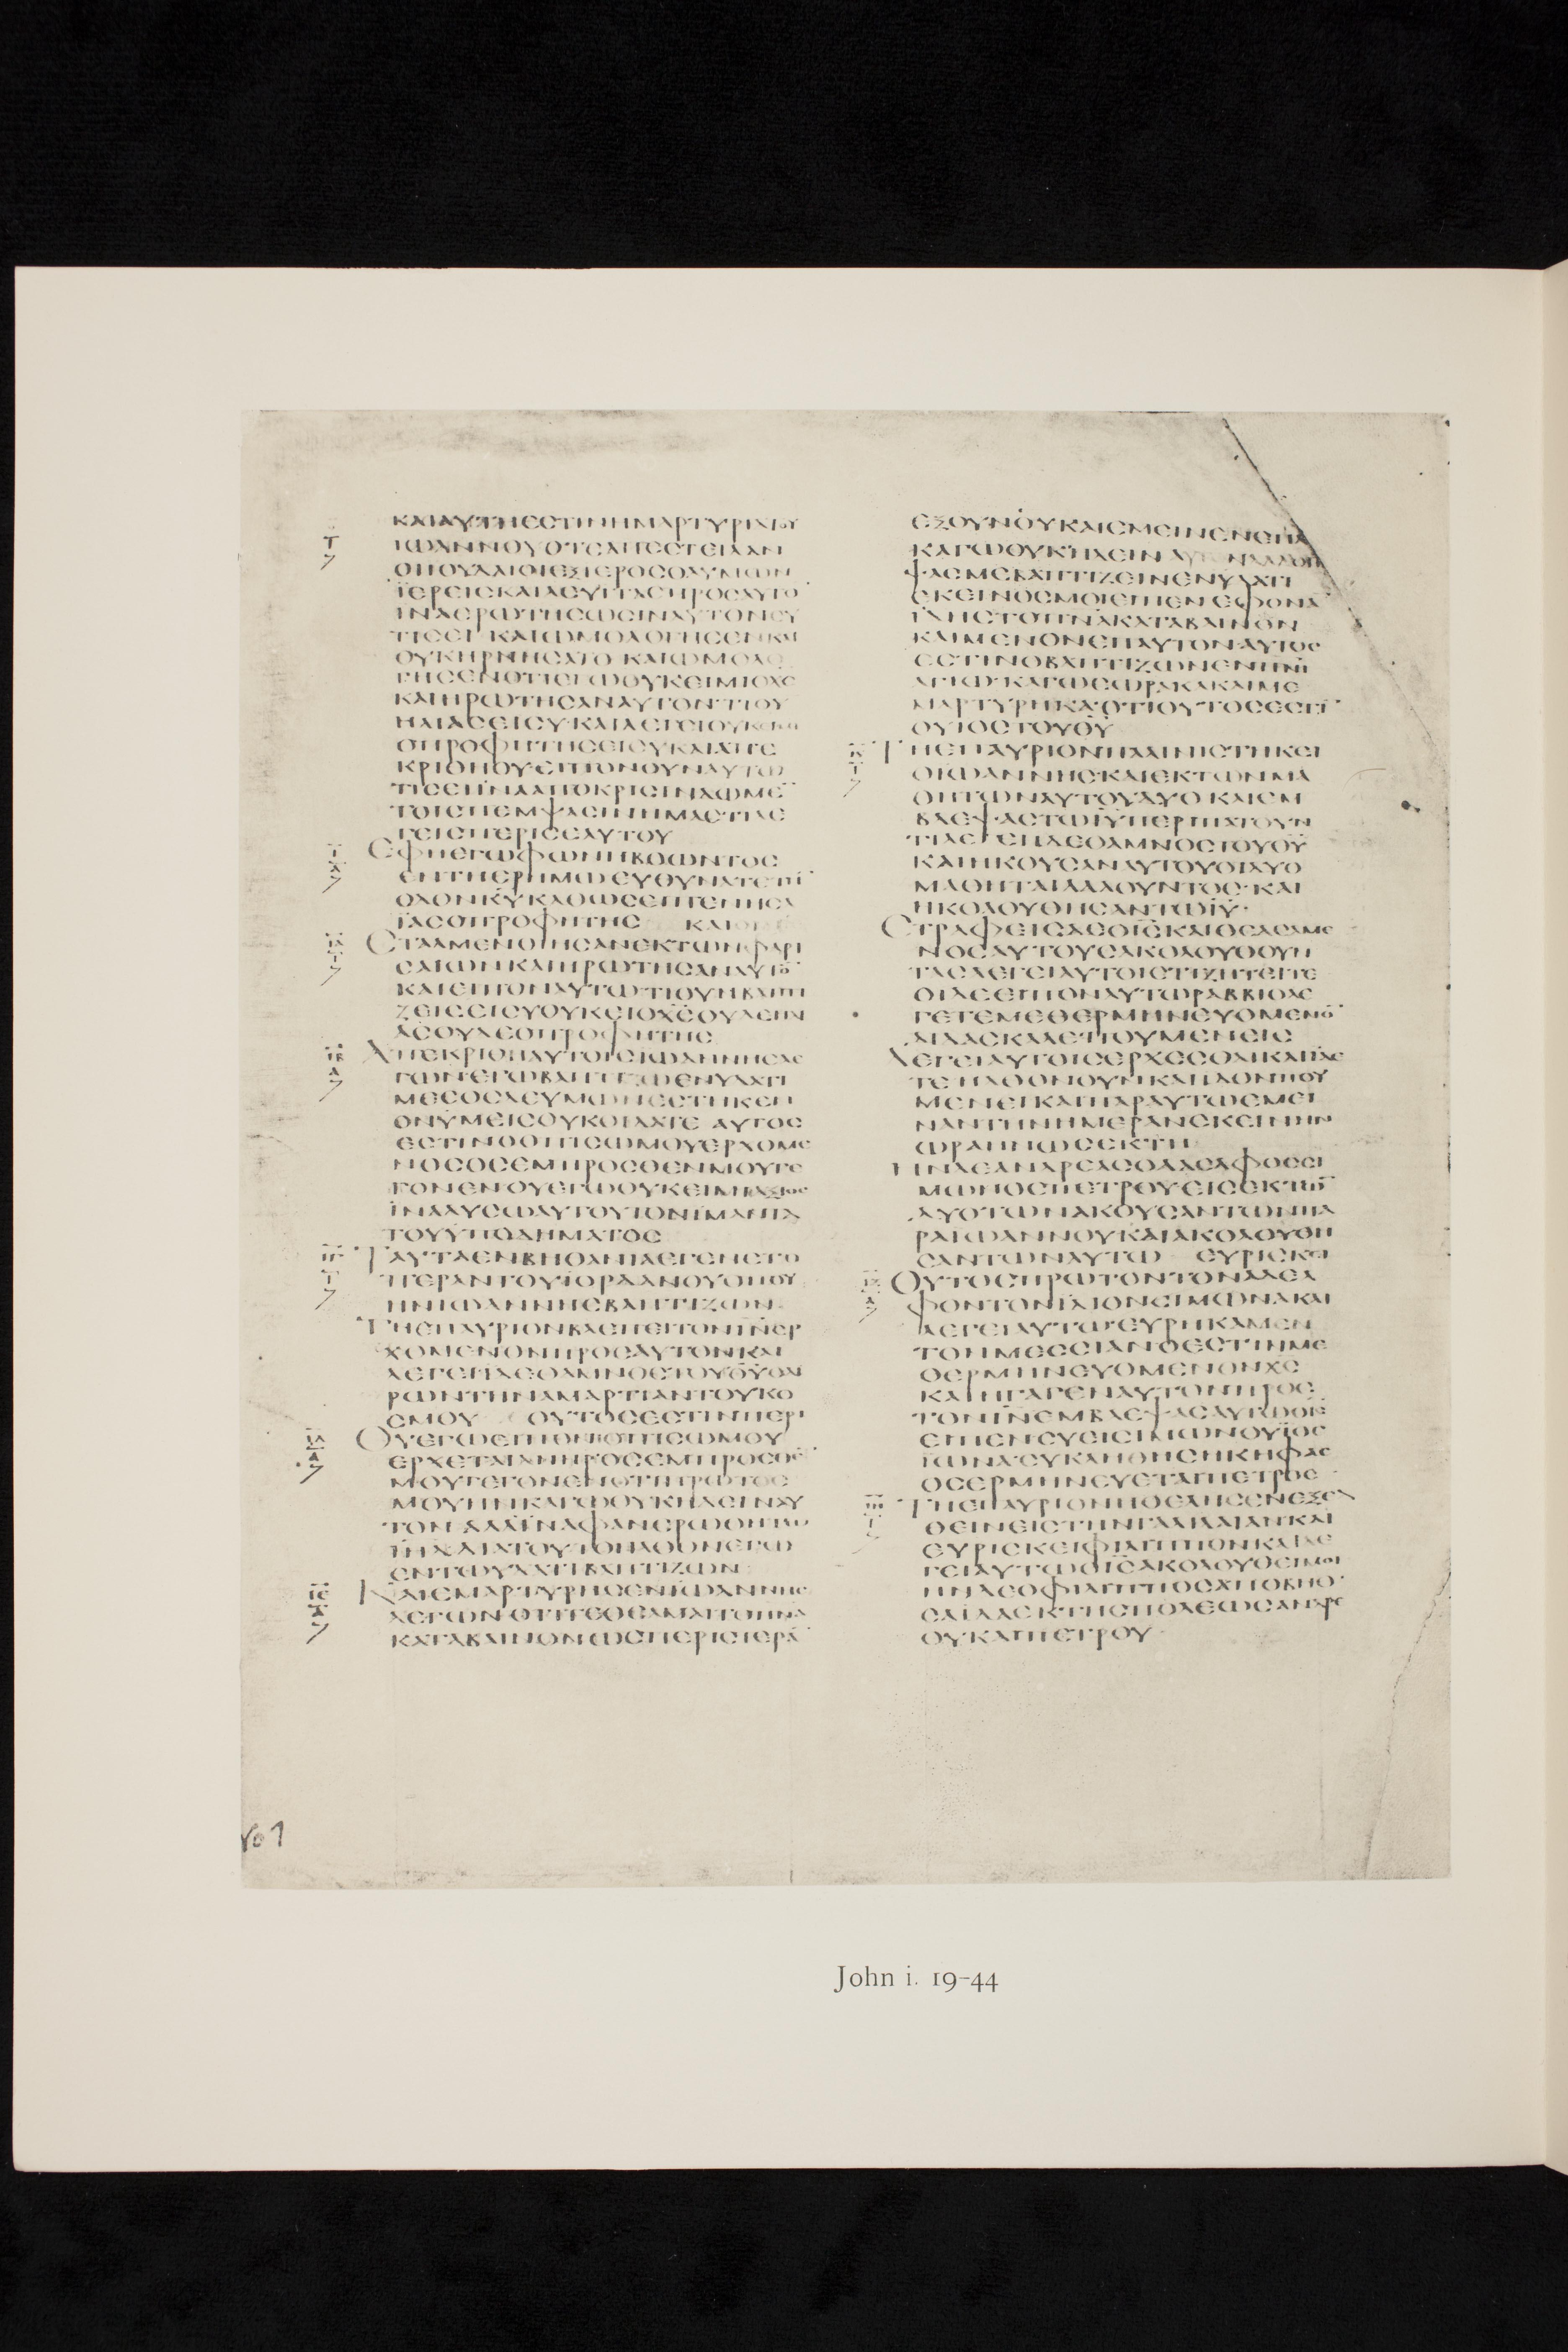 ΚΑΙΑΥΤΗΕϹΤΙΝΗΜΑΡΤΥΡΙΑΤΟΥ
ΙΩΑΝΝΟΥΟΤΕΑΠΕϹΤΕΙΛΑΝ
ΟΙΙΟΥΔΑΙΟΙΕΞΙΕΡΟϹΟΛΥΜΩΝ
ΪΕΡΕΙϹΚΑΙΛΕΥΙΤΑϹΠΡΟϹΑΥΤΟ
ΙΝΑΕΡΩΤΗϹΩϹΙΝΑΥΤΟΝϹΥ
ΤΙϹΕΙ ΚΑΙΩΜΟΛΟΓΗϹΕΝΚΑΙ
ΟΥΚΗΡΝΗϹΑΤΟ ΚΑΙΩΜΟΛΟ
ΓΗϹΕΝΟΤΙΕΓΩΟΥΚΕΙΜΙΟΧϹ
ΚΑΙΗΡΩΤΗϹΑΝΑΥΤΟΝ ΤΙΟΥ
ΗΛΙΑϹΕΙϹΥ ΚΑΙΛΕΓΕΙΟΥΚΕΙΜΙ
ΟΠΡΟΦΗΤΗϹΕΙϹΥΚΑΙΑΠΕ
ΚΡΙΘΗΟΥ ΕΙΠΟΝΟΥΝΑΥΤΩ
ΤΙϹΕΙΙΝΑΑΠΟΚΡΙϹΙΝΔΩΜΕ
ΤΟΙϹΠΕΜΨΑϹΙΝΗΜΑϹΤΙΛΕ
ΓΕΙϹΠΕΡΙϹΕΑΥΤΟΥ
ΕΦΗΕΓΩΦΩΝΗΒΟΩΝΤΟϹ
ΕΝΤΗΕΡΗΜΩΕΥΘΥΝΑΤΕΤΗ
ΟΔΟΝΚΥΚΑΘΩϹΕΙΠΕΝΗϹΑ
ΪΑϹΟΠΡΟΦΗΤΗϹ ΚΑΙΟΙ
ϹΤΑΛΜΕΝΟΙΗϹΑΝΕΚΤΩΝΦΑΡΙ
ϹΑΙΩΝΚΑΙΗΡΩΤΗϹΑΝΑΥΤΟ
ΚΑΙΕΙΠΟΝΑΥΤΩ ΤΙΟΥΝΒΑΠΤΙ
ΖΕΙϹΕΙϹΥΟΥΚΕΙΟΧϹΟΥΔΕΗΛ
ΑϹΟΥΔΕΟΠΡΟΦΗΤΗϹ
ΑΠΕΚΡΙΘΗΑΥΤΟΙϹΪΩΑΝΝΗϹΛΕ
ΓΩΝΕΓΩΒΑΠΤΙΖΩΕΝΥΔΑΤΙ
ΜΕϹΟϹΔΕΥΜΩΝΕϹΤΗΚΕΝ
ΟΝΫΜΕΙϹΟΥΚΟΙΔΑΤΕ ΑΥΤΟϹ
ΕϹΤΙΝΟΟΠΙϹΩΜΟΥΕΡΧΟΜΕ
ΝΟϹΟϹΕΜΠΡΟϹΘΕΝΜΟΥΓΕ
ΓΟΝΕΝΟΥΕΓΩΟΥΚΕΙΜΙΑΞΙΟϹ
ΪΝΑΛΥϹΩΑΥΤΟΥΤΟΝΪΜΑΝΤΑ
ΤΟΥΫΠΟΔΗΜΑΤΟϹ
ΤΑΥΤΑΕΝΒΗΘΑΝΙΑΕΓΕΝΕΤΟ
ΠΕΡΑΝΤΟΥΪΟΡΔΑΝΟΥΟΠΟΥ
ΗΝΙΩΑΝΝΗϹΒΑΠΤΙΖΩΝ
ΤΗΕΠΑΥΡΙΟΝΒΛΕΠΕΙΤΟΝΙΝΕΡ
ΧΟΜΕΝΟΝΠΡΟϹΑΥΤΟΝΚΑΙ
ΛΕΓΕΙΪΔΕΟΑΜΝΟϹΤΟΥΘΥΟΑΙ
ΡΩΝΤΗΝΑΜΑΡΤΙΑΝΤΟΥΚΟ
ϹΜΟΥ ΟΥΤΟϹΕϹΤΙΝΠΕΡΙ
ΟΥΕΓΩΕΙΠΟΝΟΠΙϹΩΜΟΥ
ΕΡΧΕΤΑΙΑΝΗΡΟϹΕΜΠΡΟϹΘΕ
ΜΟΥΓΕΓΟΝΕΝΟΤΙΠΡΩΤΟϹ
ΜΟΥΗΝΚΑΓΩΟΥΚΗΔΕΙΝΑΥ
ΤΟΝ ΑΛΛΪΝΑΦΑΝΕΡΩΘΗΤΩ
ΙΗΛΔΙΑΤΟΥΤΟΗΛΘΟΝΕΓΩ
ΕΝΤΩΥΔΑΤΙΒΑΠΤΙΖΩΝ
ΚΑΙΕΜΑΡΤΥΡΗϹΕΝΪΩΑΝΝΗϹ
ΛΕΓΩΝΟΤΙΤΕΘΕΑΜΑΙΤΟΠΝΑ
ΚΑΤΑΒΑΙΝΟΝΩϹΠΕΡΙϹΤΕΡΑ
ΕΞΟΥΝΟΥΚΑΙΕΜΕΙΝΕΝΕΠΑ
ΚΑΓΩΟΥΚΗΔΕΙΝΑΥ ΝΑΛΛΟΠ
ΨΑϹΜΕΒΑΠΤΙΖΕΙΝΕΝΥΔΑΤΙ
ΕΚΕΙΝΟϹΜΟΙΕΙΠΕΝΕΦΟΝΑ
ΪΔΗϹΤΟΠΝΑΚΑΤΑΒΑΙΝΟΝ
ΚΑΙΜΕΝΟΝΕΠΑΥΤΟΝ ΑΥΤΟϹ
ΕϹΤΙΝΟΒΑΠΤΙΖΩΝΕΝΠΝΙ
ΑΓΙΩ ΚΑΓΩΕΩΡΑΚΑΚΑΙΜΕ
ΜΑΡΤΥΡΗΚΑΟΤΙΟΥΤΟϹΕϹΤΙ
ΟΥΙΟϹΤΟΥΘΥ
ΤΗΕΠΑΥΡΙΟΝΠΑΛΙΝΙϹΤΗΚΕΙ
ΟΙΩΑΝΝΗϹΚΑΙΕΚΤΩΝΜΑ
ΘΗΤΩΝΑΥΤΟΥΔΥΟ ΚΑΙΕΜ
ΒΛΕΨΑϹΤΩΙΥΠΕΡΙΠΑΤΟΥΝ
ΤΙΛΕΓΕΙΪΔΕΟΑΜΝΟϹΤΟΥΘΥ
ΚΑΙΗΚΟΥϹΑΝΑΥΤΟΥΟΙΔΥΟ
ΜΑΘΗΤΑΙΛΑΛΟΥΝΤΟϹ ΚΑΙ
ΗΚΟΛΟΥΘΗϹΑΝΤΩΙΥ
ϹΤΡΑΦΕΙϹΔΕΟΙϹΚΑΙΘΕΑϹΑΜΕ
ΝΟϹΑΥΤΟΥϹΑΚΟΛΟΥΘΟΥΝ
ΤΑϹΛΕΓΕΙΑΥΤΟΙϹΤΙΖΗΤΕΙΤΕ
ΟΙΔΕΕΙΠΟΝΑΥΤΩΡΑΒΒΙΟΛΕ
ΓΕΤΕΜΕΘΕΡΜΗΝΕΥΟΜΕΝΟ
ΔΙΔΑϹΚΑΛΕΠΟΥΜΕΝΕΙϹ
ΛΕΓΕΙΑΥΤΟΙϹΕΡΧΕϹΘΑΙΚΑΙΪΔΕ
ΤΕ ΗΛΘΟΝΟΥΝΚΑΙΪΔΟΝΠΟΥ
ΜΕΝΕΙΚΑΙΠΑΡΑΥΤΩΕΜΕΙ
ΝΑΝΤΗΝΗΜΕΡΑΝΕΚΕΙΝΗΝ
ΩΡΑΗΝΩϹΕΚΤΗ
ΗΝΔΕΑΝΔΡΕΑϹΟΑΔΕΛΦΟϹϹΙ
ΜΩΝΟϹΠΕΤΡΟΥΕΙϹΕΚΤΩ
ΔΥΟΤΩΝΑΚΟΥϹΑΝΤΩΝΠΑ
ΡΑΙΩΑΝΝΟΥΚΑΙΑΚΟΛΟΥΘΗ
ϹΑΝΤΩΝΑΥΤΩ ΕΥΡΙϹΚΕΙ
ΟΥΤΟϹΠΡΩΤΟΝΤΟΝΑΔΕΛ
ΦΟΝΤΟΝΪΔΙΟΝϹΙΜΩΝΑΚΑΙ
ΛΕΓΕΙΑΥΤΩ ΕΥΡΗΚΑΜΕΝ
ΤΟΝΜΕϹϹΙΑΝΟΕϹΤΙΝΜΕ
ΘΕΡΜΗΝΕΥΟΜΕΝΟΝΧϹ
ΚΑΙΗΓΑΓΕΝΑΥΤΟΝΠΡΟϹ
ΤΟΝΙΝΕΜΒΛΕΨΑϹΑΥΤΩΟΙϹ
ΕΙΠΕΝϹΥΕΙϹΙΜΩΝΟΥΪΟϹ
ΪΩΝΑϹΥΚΛΗΘΗϹΗΚΗΦΑϹ
ΟΕΡΜΗΝΕΥΕΤΑΙΠΕΤΡΟϹ
ΤΗΕΠΑΥΡΙΟΝΗΘΕΛΗϹΕΝΕΞΕΛ
ΘΕΙΝΕΙϹΤΗΝΓΑΛΙΛΑΙΑΝΚΑΙ
ΕΥΡΙϹΚΕΙΦΙΛΙΠΠΟΝΚΑΙΛΕ
ΓΕΙΑΥΤΩΟΙϹΑΚΟΛΟΥΘΕΙΜΟΙ
ΗΝΔΕΟΦΙΛΙΠΠΟϹΑΠΟΒΗΘ
ϹΑΪΔΑΕΚΤΗϹΠΟΛΕΩϹΑΝΔΡΕ
ΟΥΚΑΙΠΕΤΡΟΥ
John i. 19–44